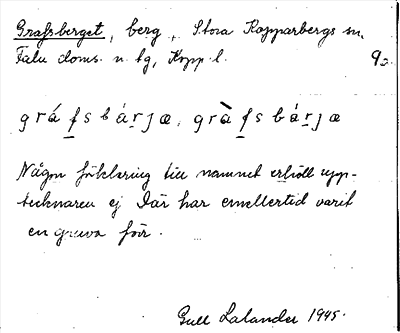 Grafsberget, berg, Stora Kopparbergs sn,
Falu doms. n. tg, Kopp. l. 90
gráfsbárjæ, gràfsbárjæ
Någon förklaring till namnet erhöll upp-
tecknaren ej. Där har emellertid varit
en gruva förr.
Gull Lalander 1945.